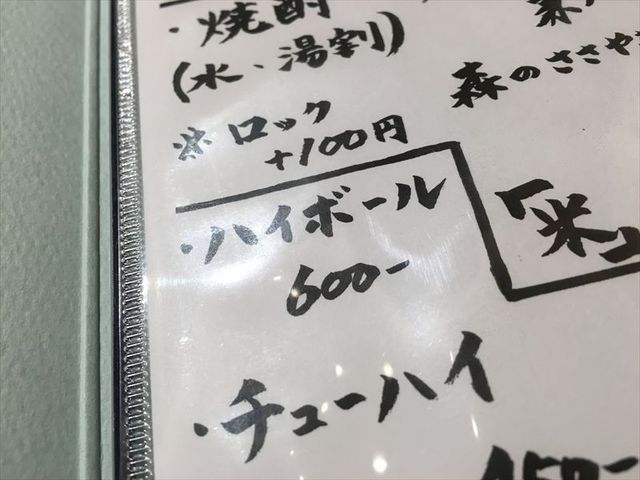 ・焼酎
(水・湯割)
※ロック
+100円
森のささや
「米」
・ハイボール
600-
・チューハイ